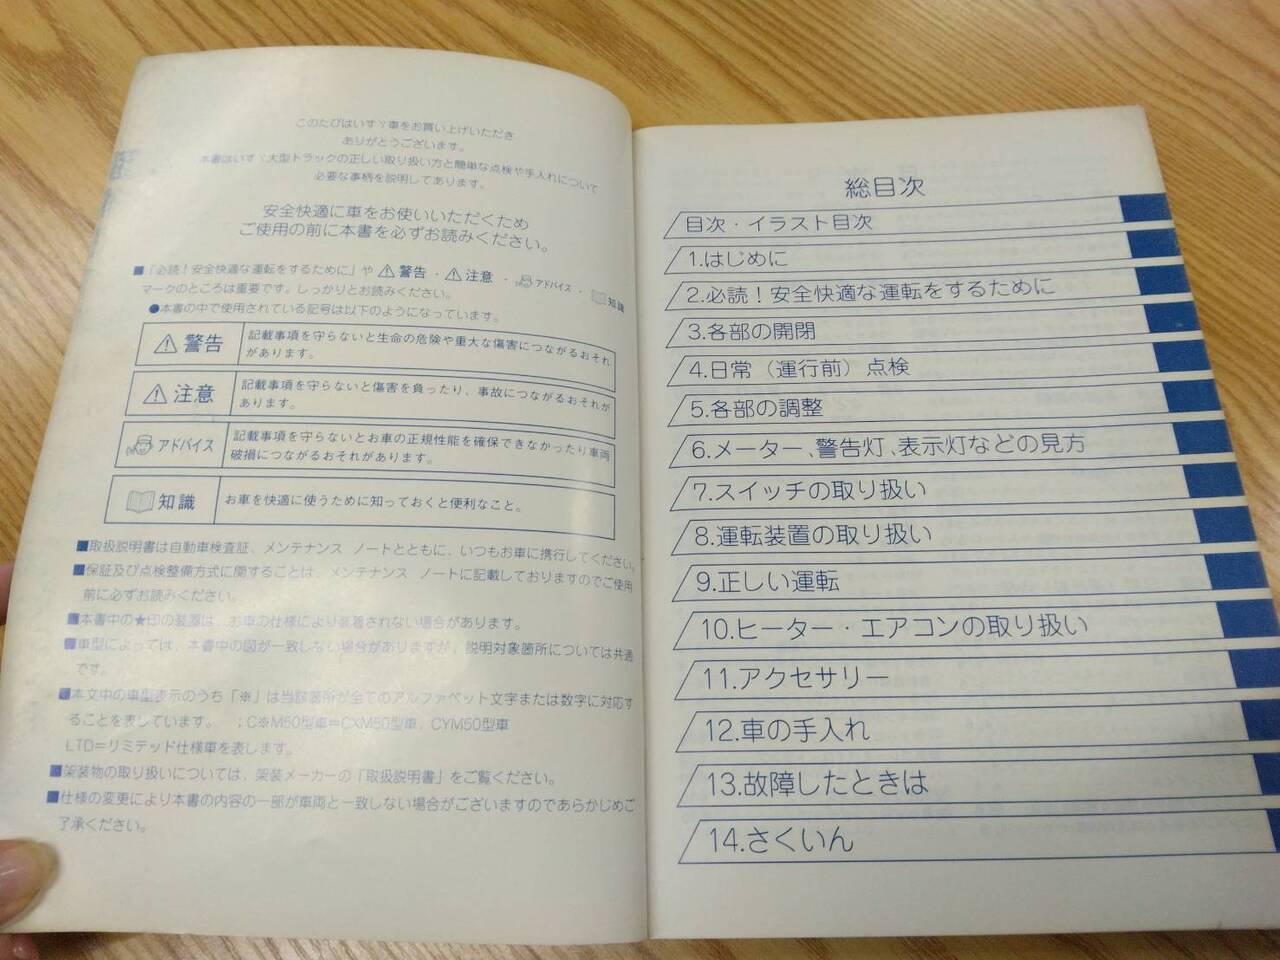 このたびはいすゞ車をお買い上げいただき
ありがとうございます。
本書はいすゞ大型トラックの正しい取り扱い方と簡単な点検や手入れについて
必要な事柄を説明してあります。
安全快適に車をお使いいただくため
ご使用の前に本書を必ずお読みください。
■「必読!安全快適な運転をするために」や ⚠警告・⚠注意・アドバイス・知識
マークのところは重要です。しっかりとお読みください。
●本書の中で使用されている記号は以下のようになっています。
⚠警告
記載事項を守らないと生命の危険や重大な傷害につながるおそれ
があります。
⚠注意
記載事項を守らないと傷害を負ったり、事故につながるおそれが
あります。
アドバイス
記載事項を守らないとお車の正規性能を確保できなかったり車両
破損につながるおそれがあります。
知識
お車を快適に使うために知っておくと便利なこと。
■取扱説明書は自動車検査証、メンテナンス ノートとともに、いつもお車に携行してください。
■保証及び点検整備方式に関することは、メンテナンス ノートに記載しておりますのでご使用
前に必ずお読みください。
■本書中の★印の装置は、お車の仕様により装着されない場合があります。
■車型によっては、本書中の図が一致しない場合がありますが、説明対象箇所については共通
です。
■本文中の車型表示のうち「※」は当該箇所が全てのアルファベット文字または数字に対応す
ることを表しています。 ;C※M50型車=CXM50型車、CYM50型車
LTD=リミテッド仕様車を表します。
■架装物の取り扱いについては、架装メーカーの「取扱説明書」をご覧ください。
■仕様の変更により本書の内容の一部が車両と一致しない場合がございますのであらかじめご
了承ください。
総目次
目次・イラスト目次
1.はじめに
2.必読!安全快適な運転をするために
3.各部の開閉
4.日常(運行前)点検
5.各部の調整
6.メーター、警告灯、表示灯などの見方
7.スイッチの取り扱い
8.運転装置の取り扱い
9.正しい運転
10.ヒーター・エアコンの取り扱い
11.アクセサリー
12.車の手入れ
13.故障したときは
14.さくいん